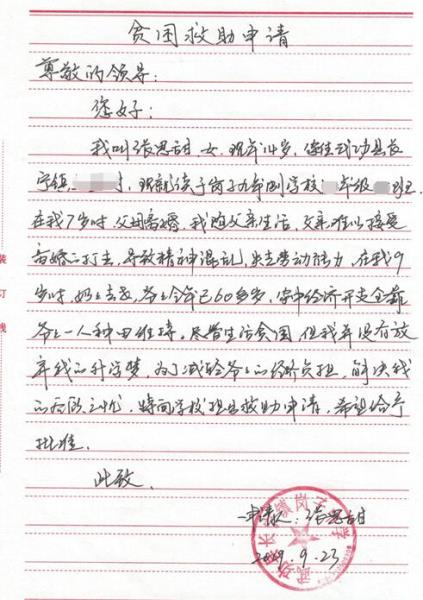 贫困救助申请
尊敬的领导：
您好：
我叫张思甜，女，现年14岁，家住武功县长
宁镇 村，现就读于岗子九年制学校 年级 班，
在我7岁时，父母离婚，我随父亲生活，父亲难以接受
离婚的打击，导致精神混乱，失去劳动能力，在我9
岁时，奶奶去世，爷爷今年已60多岁，家中经济开支全靠
爷爷一人种田维持。尽管生活贫困，但我并没有放
弃我的升学梦，为了减轻爷爷的经济负担，解决我
的后顾之忧，特向学校提出救助申请，希望给予
批准。
此致。
申请人：张思甜
2019.9.23
装
订
线